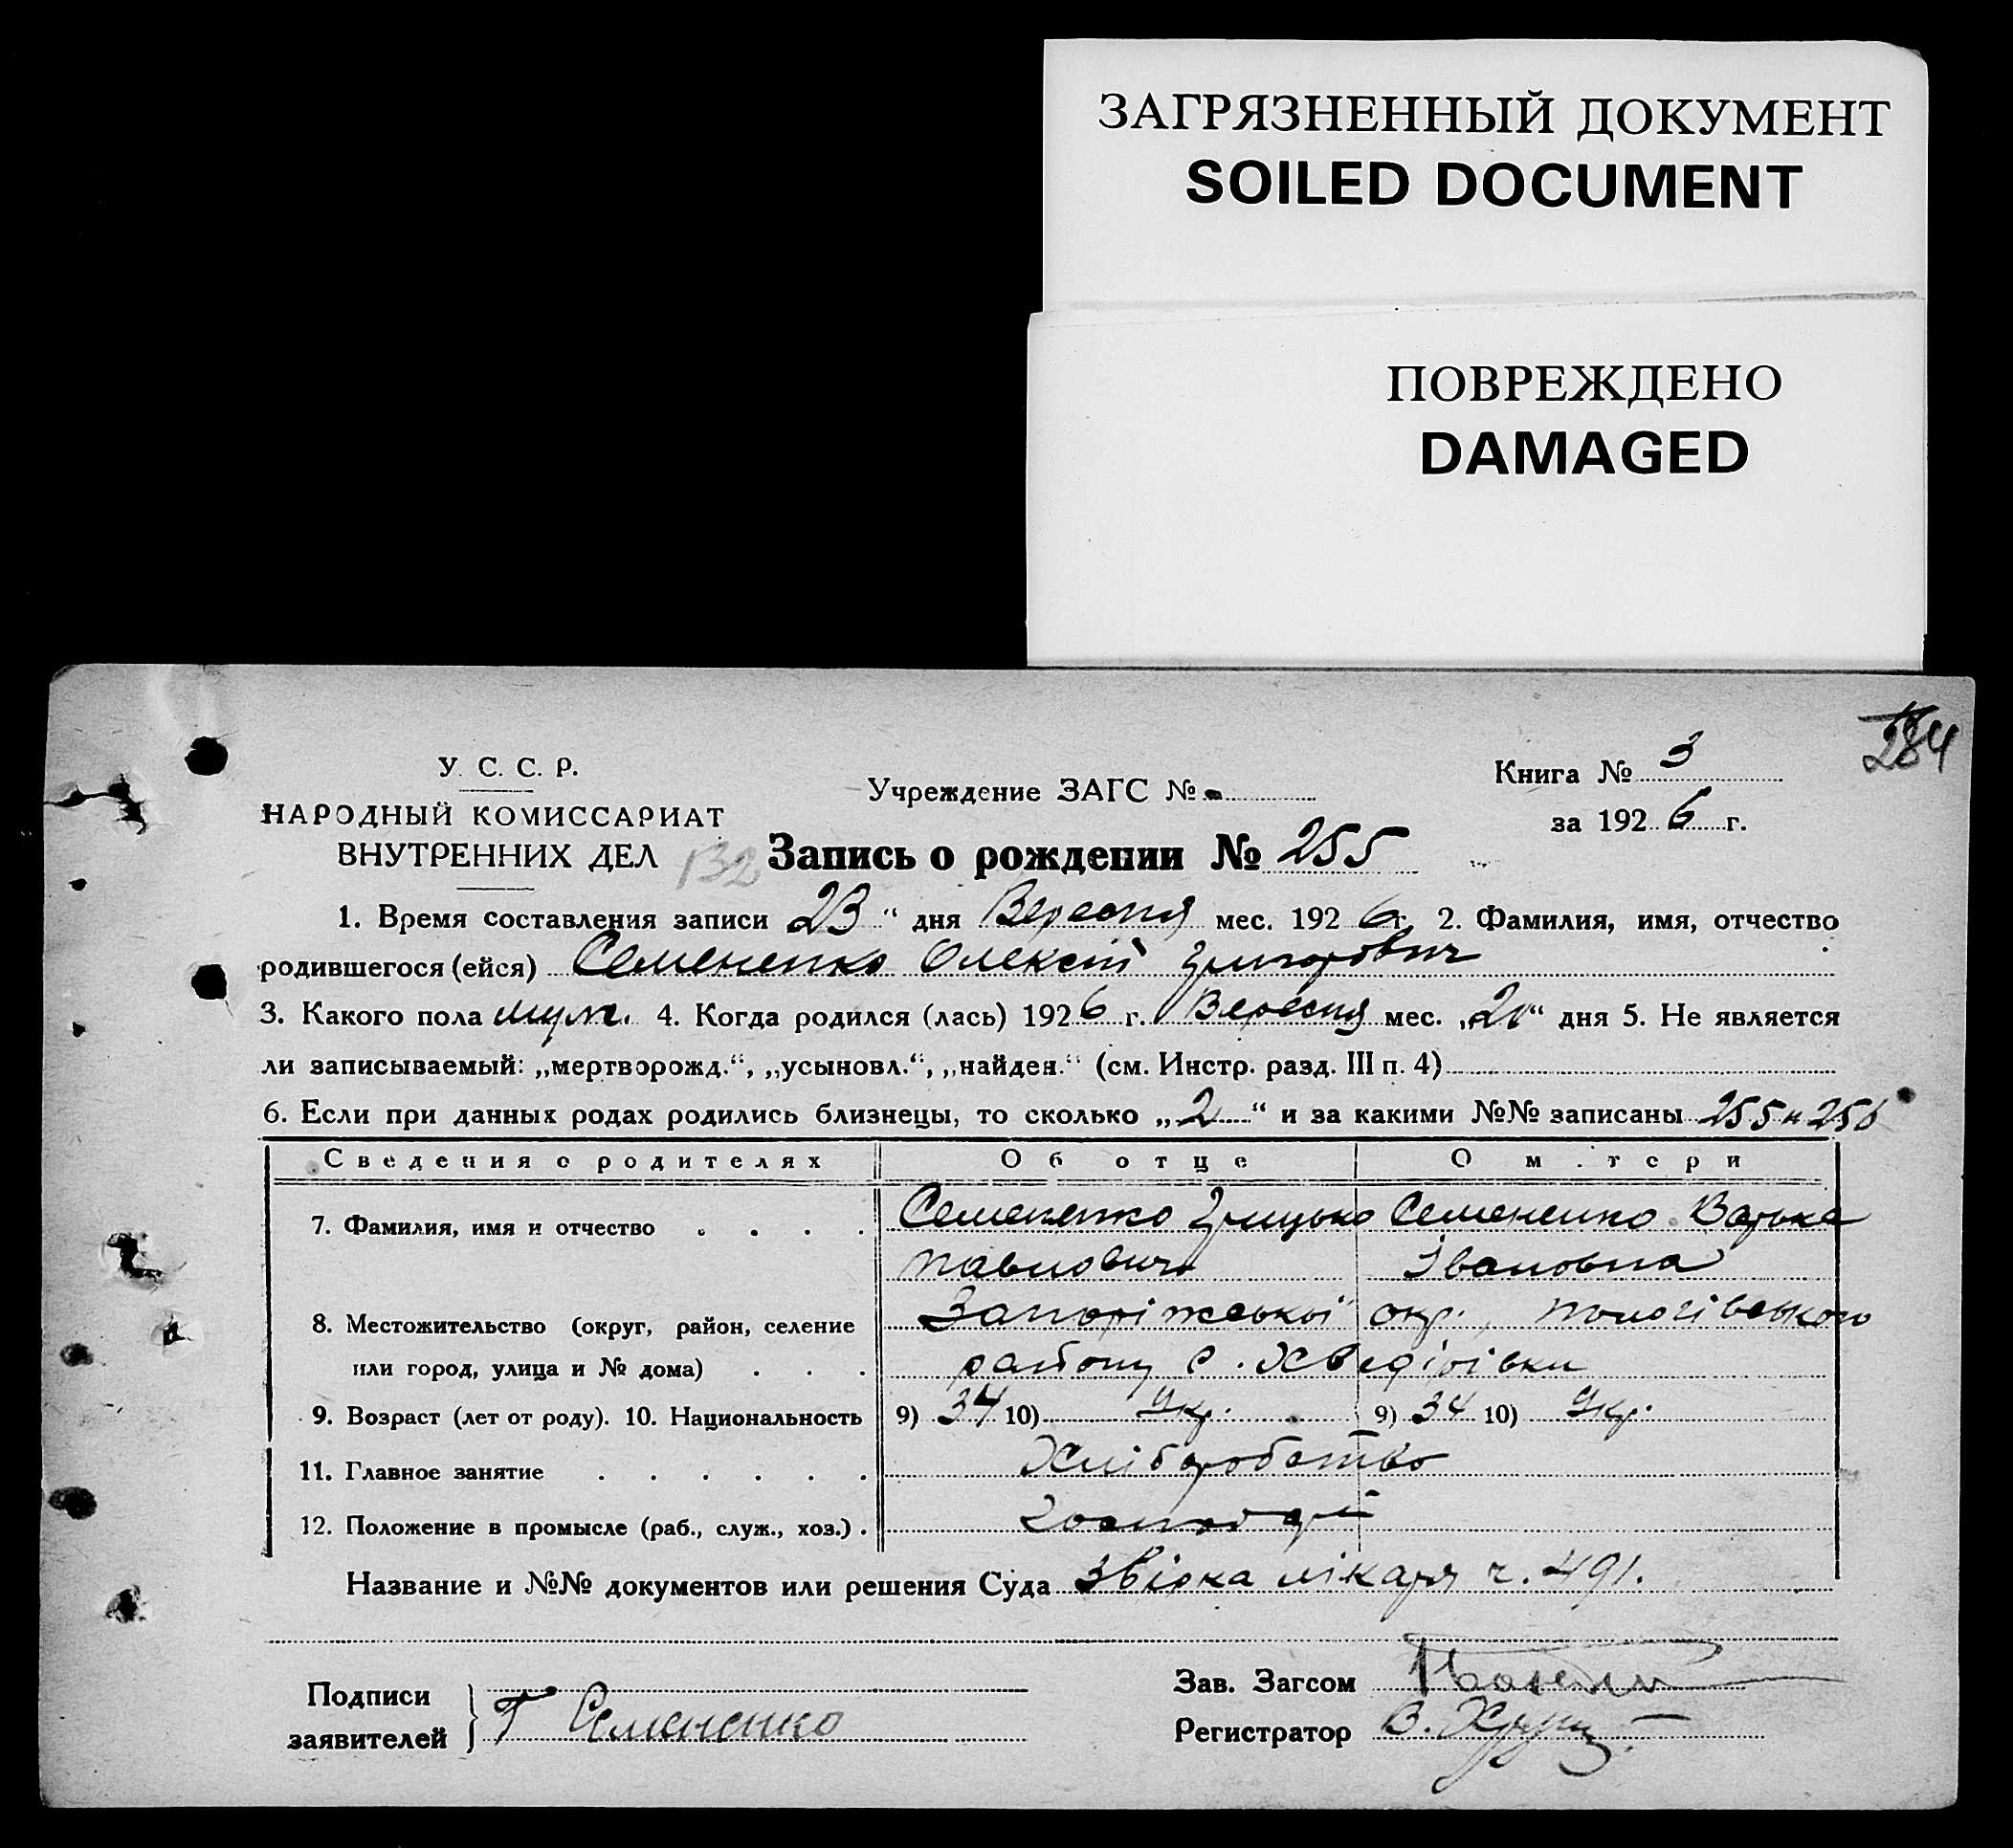 ЗАГРЯЗНЕННЫЙ ДОКУМЕНТ
SOILED DOCUMENT
ПОВРЕЖДЕНО
DAMAGED
284
У. С. С. Р.
НАРОДНЫЙ КОМИССАРИАТ
ВНУТРЕННИХ ДЕЛ
132
Учреждение ЗАГС №
Книга № 3
за 1926 г.
Запись о рождении № 255
1. Время составления записи 23 " дня Вересня мес. 1926 г. 2. Фамилия, имя, отчество
родившегося (ейся) Семененко Олексій Григорович
3. Какого пола муж. 4. Когда родился (лась) 1926 г. Вересня мес. „ “ дня 5. Не является
ли записываемый: „мертворожд.“, „усыновл.“, „найден.“ (см. Инстр. разд. III п. 4)
6. Если при данных родах родились близнецы, то сколько „2“ и за какими №№ записаны 255 и 256
Сведения о родителях Об отце О м.тери
7. Фамилия, имя и отчество . . . . Семененко Грицько Семененко Варька
Павлович Івановна
8. Местожительство (округ, район, селение Запоріжської окр., Пологівського
или город, улица и № дома) . . . району с. Хведірівки
9. Возраст (лет от роду). 10. Национальность 9) 34 10) Укр. 9) 34 10) Укр.
11. Главное занятие . . . . . . Хліборобство
12. Положение в промысле (раб., служ., хоз.) . Господарі
Название и №№ документов или решения Суда Звірка лікаря ч. 491.
Подписи
заявителей } Г Семененко
Зав. Загсом
Регистратор В.